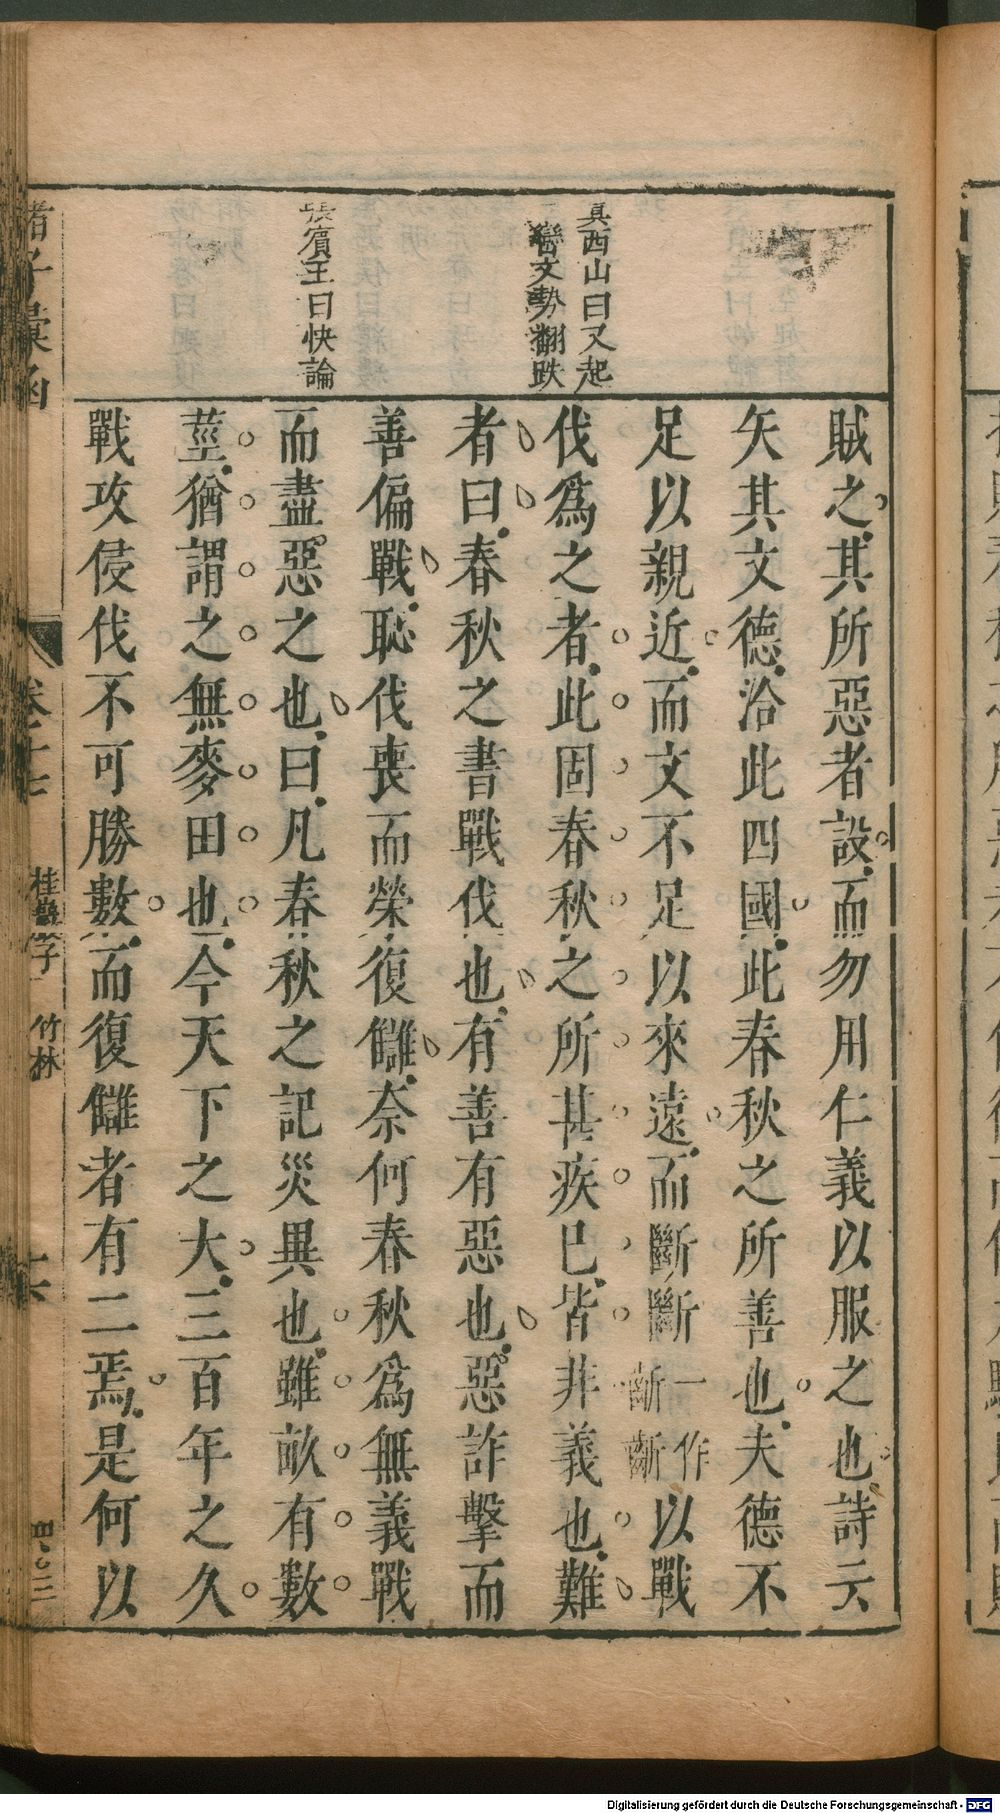 真西山曰又起
營文勢翻跌
張賓王曰快論
賊之其所惡者設而勿用仁義以服之也詩云
矢其文德洽此四國此春秋之所善也夫德不
足以親近而文不足以來遠而斷斷一作斷斷以戰
伐爲之者此固春秋之所甚疾已皆非義也難
者曰春秋之書戰伐也有善有惡也惡詐擊而
善偏戰恥伐喪而榮復讎奈何春秋爲無義戰
而盡惡之也曰凡春秋之記災異也雖畝有數
莖猶謂之無麥田也今天下之大三百年之久
戰攻侵伐不可勝數而復讎者有二焉是何以
諸子彙函
卷十七
桂巖子 竹林
十六
Digitalisierung gefördert durch die Deutsche Forschungsgemeinschaft - DFG